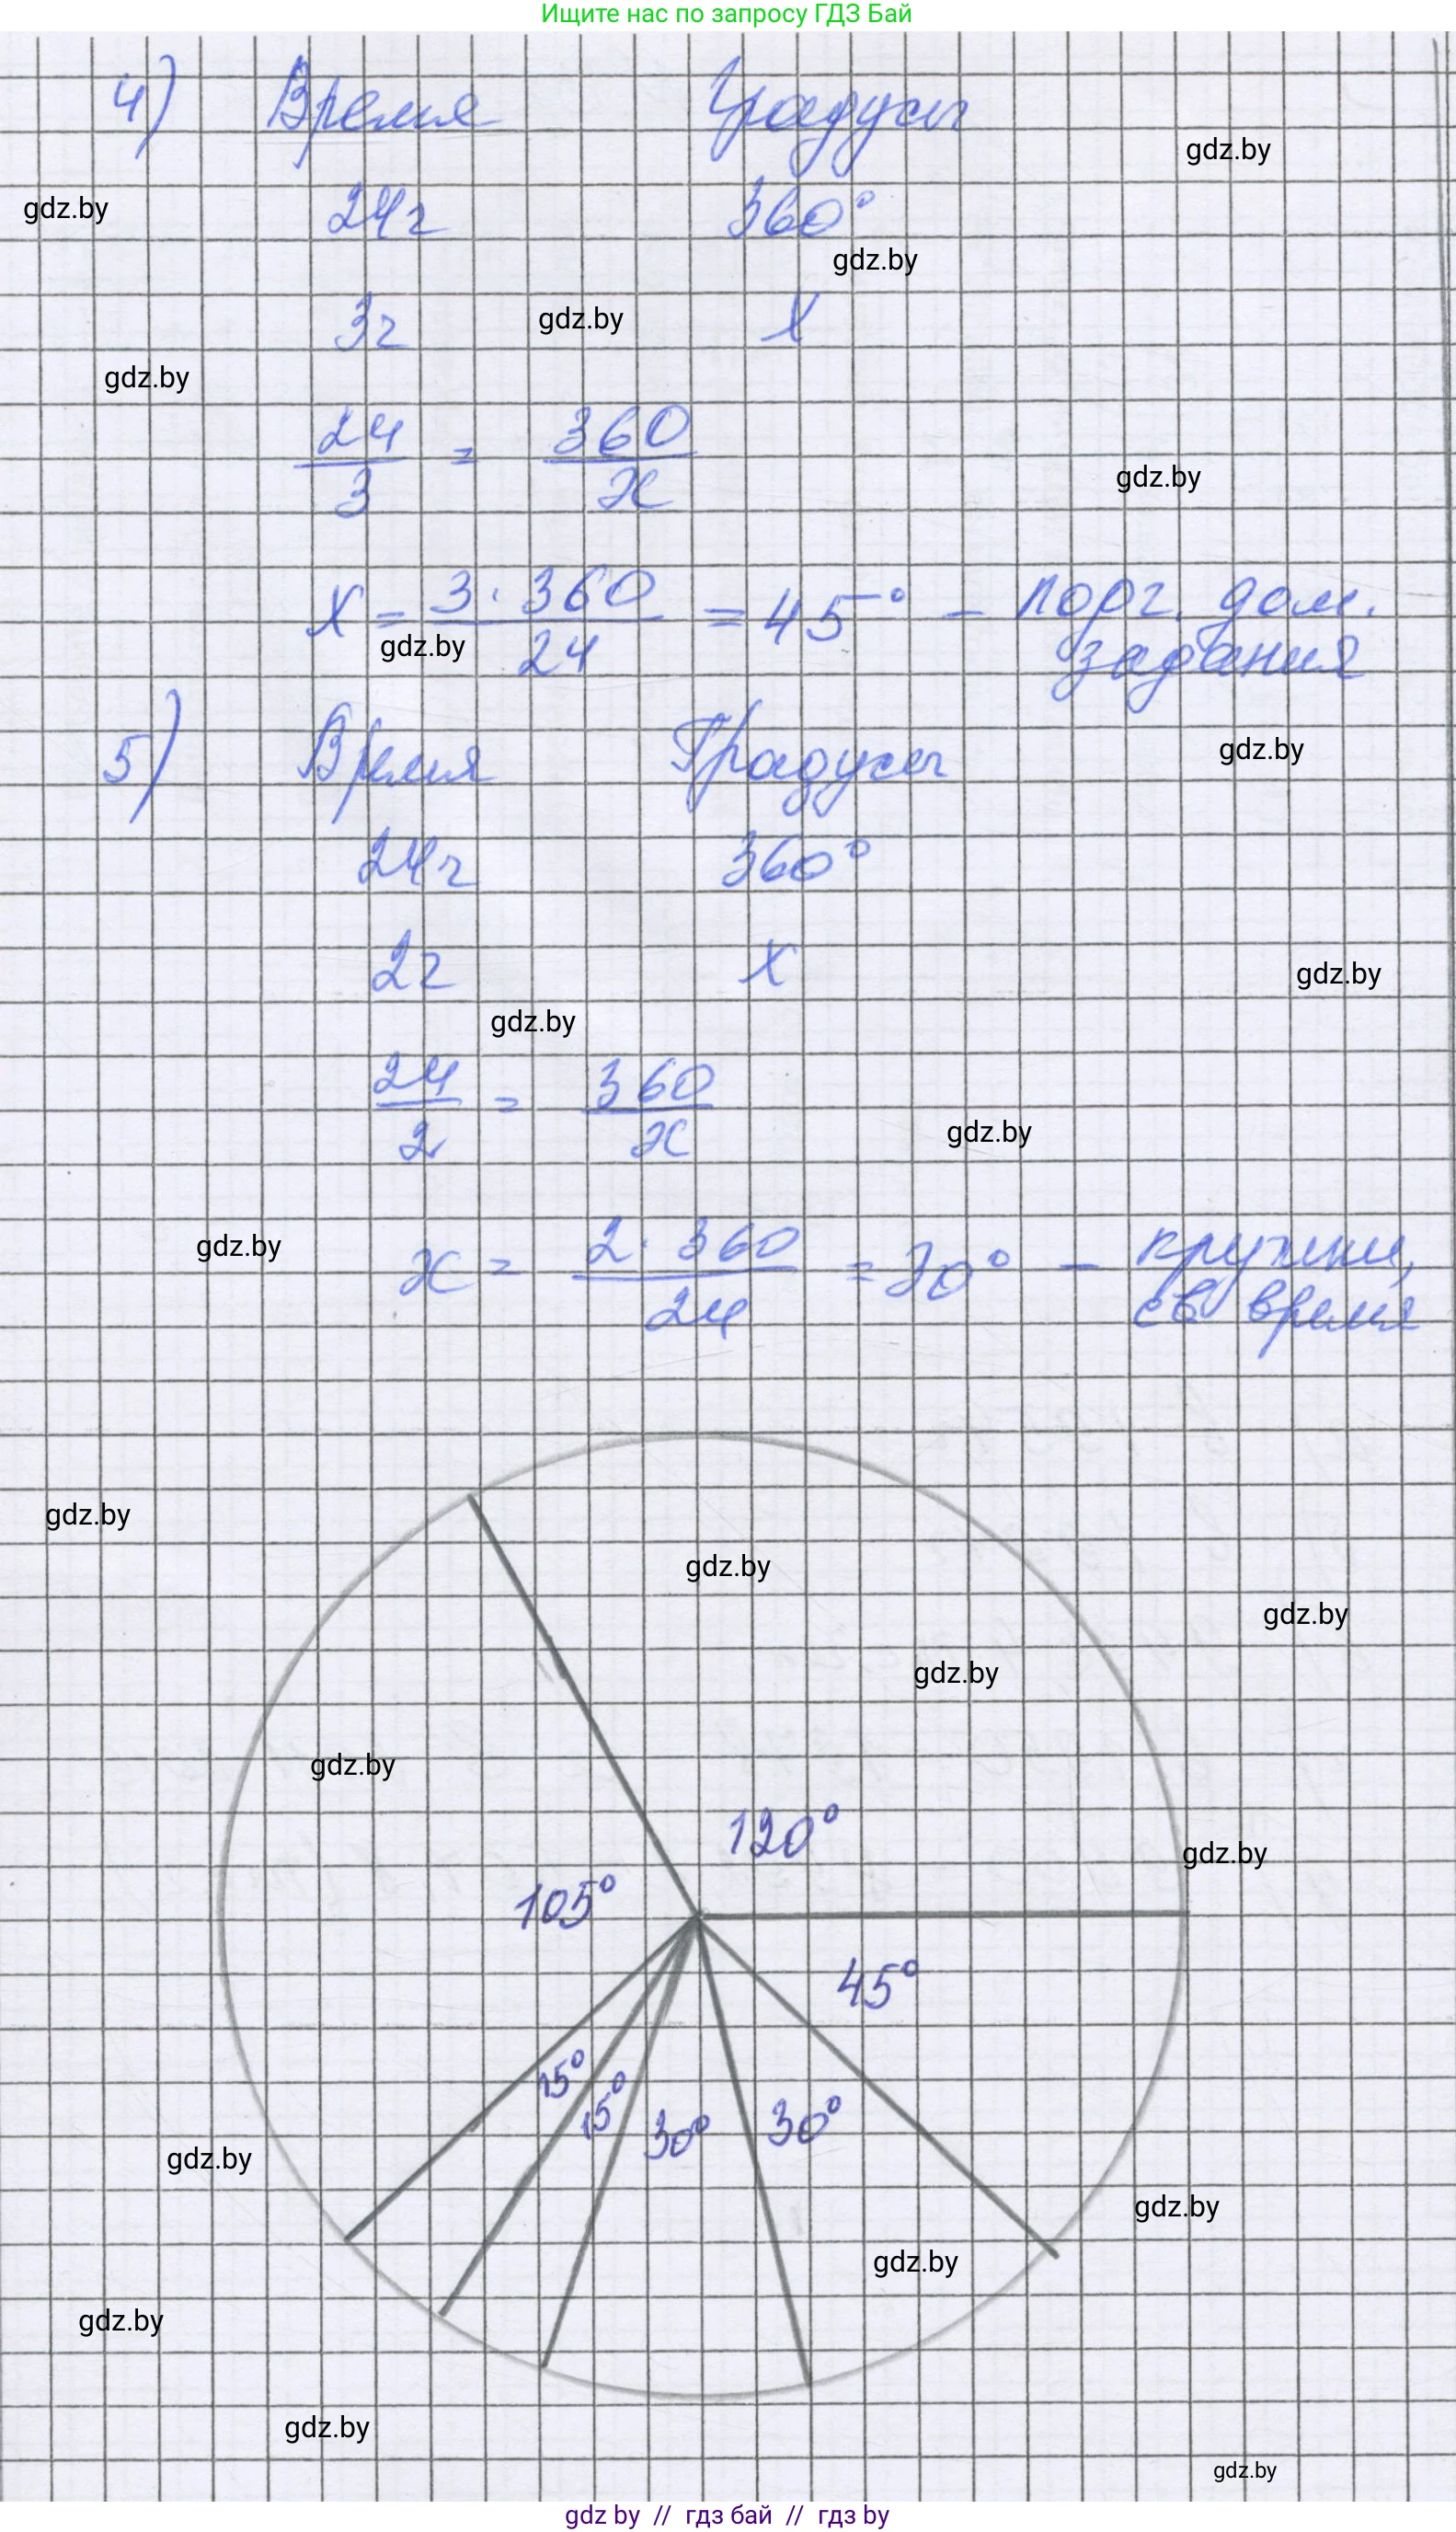 Ищите нас по запросу ГДЗ Бай
4) Время Градусы
gdz.by
gdz.by
24ч 360°
gdz.by
3ч gdz.by X
gdz.by
24/3 = 360/x
gdz.by
x = 3·360/24 = 45° – подг. дом. задания
gdz.by
5) Время Градусы
gdz.by
24ч 360°
2ч x
gdz.by
gdz.by
24/2 = 360/x
gdz.by
gdz.by
x = 2·360/24 = 30° – кружки,
св время
gdz.by
gdz.by
gdz.by
gdz.by
gdz.by
120°
gdz.by
105°
45°
15°
15°
30°
30°
gdz.by
gdz.by
gdz.by
gdz.by
gdz.by
gdz.by
gdz by // гдз бай // гдз by